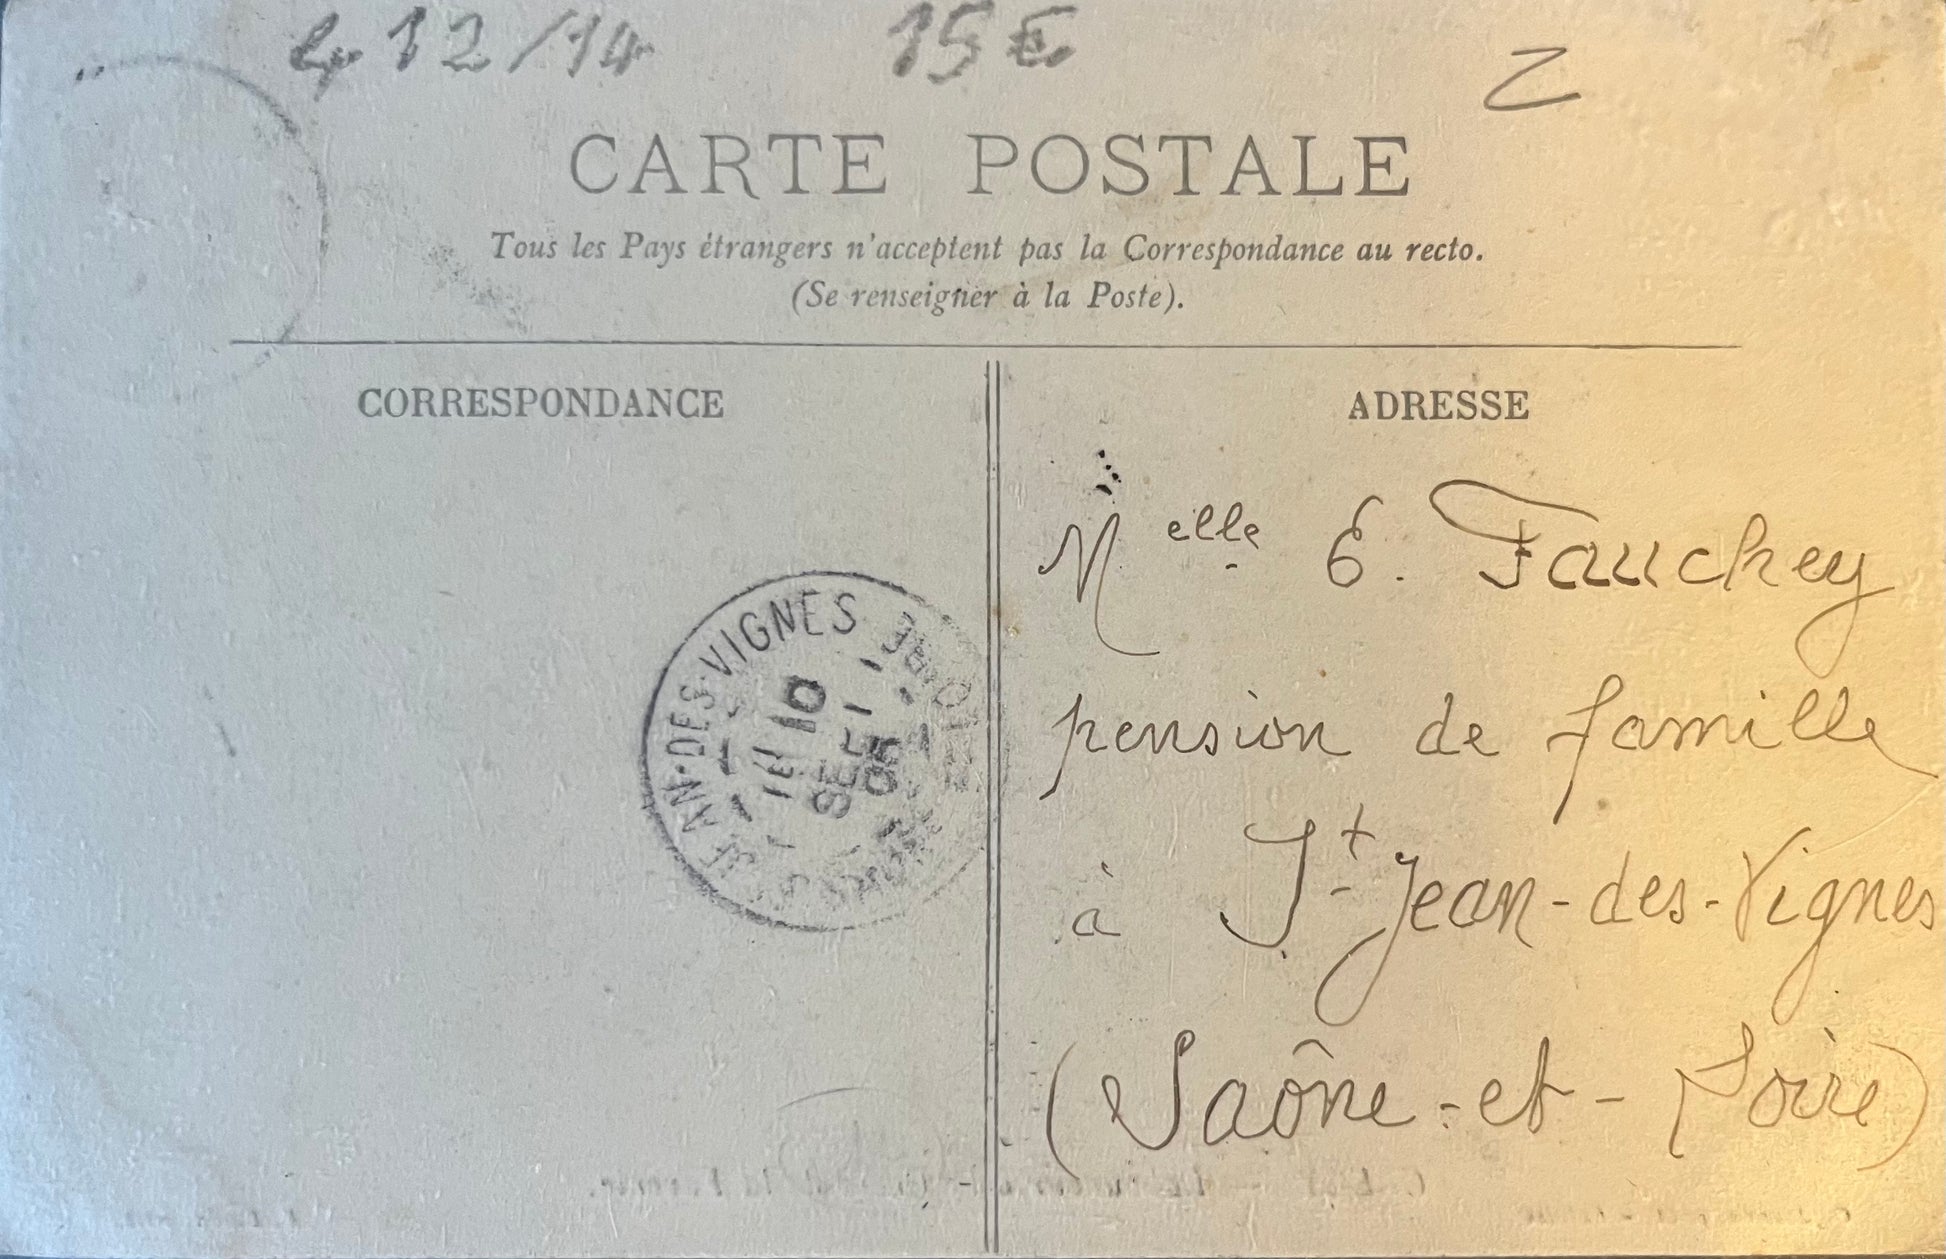 12/14 15€
CARTE POSTALE
Tous les Pays étrangers n'acceptent pas la Correspondance au recto.
(Se renseigner à la Poste).
CORRESPONDANCE
ADRESSE
Melle E. Fauchey
pension de famille
à St-Jean-des-Vignes
(Saône-et-Loire)
JEAN-DES-VIGNES
10
SEPT
05
LOIRE